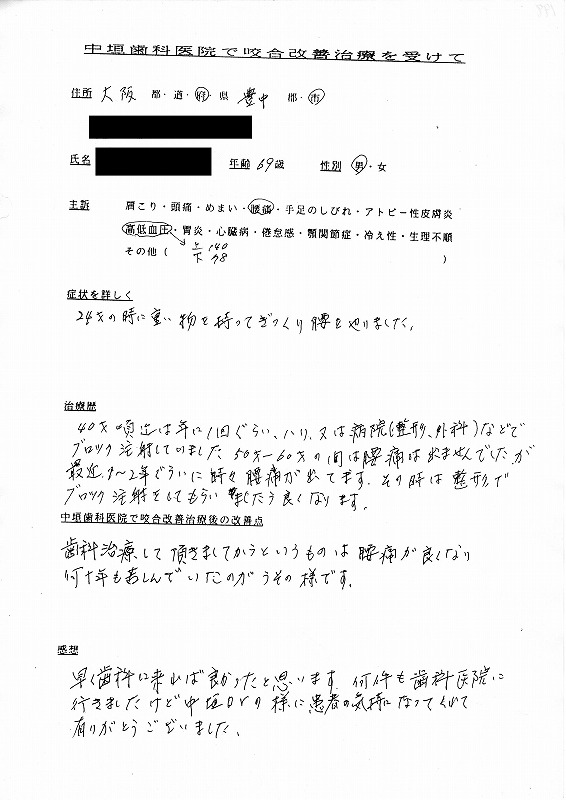 中垣歯科医院で咬合改善治療を受けて
住所 大阪 都・道・府・県 豊中 郡・市
氏名 年齢 69歳 性別 男・女
主訴 肩こり・頭痛・めまい・腰痛・手足のしびれ・アトピー性皮膚炎
高低血圧・胃炎・心臓病・倦怠感・顎関節症・冷え性・生理不順
その他( 上 140
下 98 )
症状を詳しく
24才の時に重い物を持ってぎっくり腰をやりました。
治療歴
40才頃迄は年に1回ぐらい、ハリ、又は病院(整形、外科)などで
ブロック注射していました 50才〜60才の間は腰痛は出ませんでしたが
最近1〜2年ぐらいに時々腰痛が出てます。その時は整形で
ブロック注射をしてもらいましたら良くなります。
中垣歯科医院で咬合改善治療後の改善点
歯科治療して頂きましてからというものは腰痛が良くなり
何十年も苦しんでいたのがうその様です。
感想
早く歯科に来れば良かったと思います。何件も歯科医院に
行きましたけど中垣Drの様に患者の気持になってくれて
有りがとうございました。